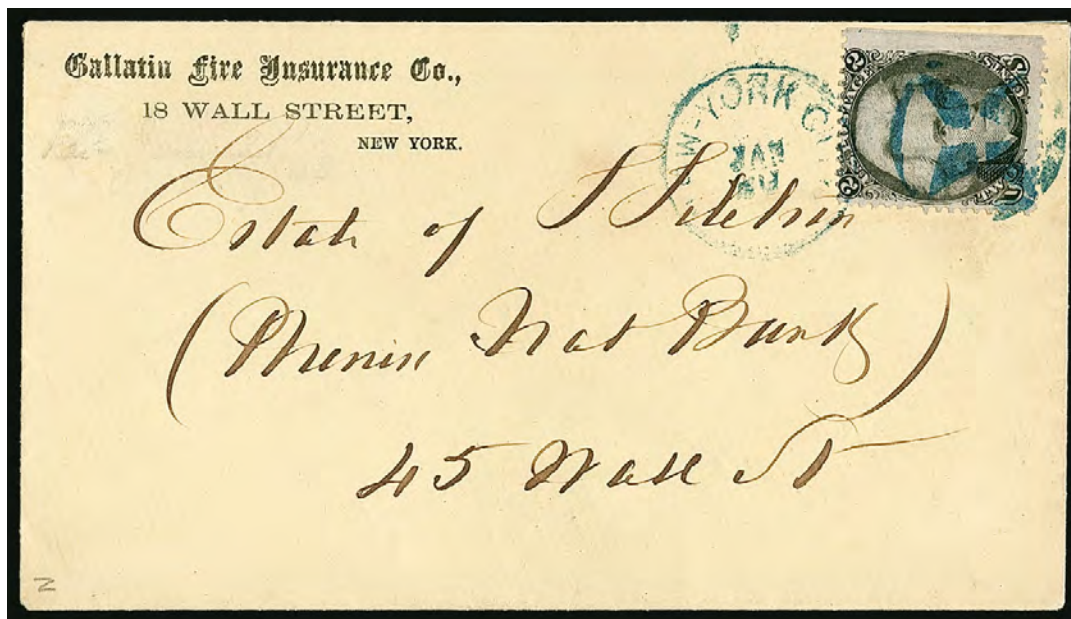 Gallatin Fire Insurance Co.,
18 WALL STREET,
NEW YORK.
W-YORK C
Estate of
(Phenix Nat Bank)
45 Wall St
2